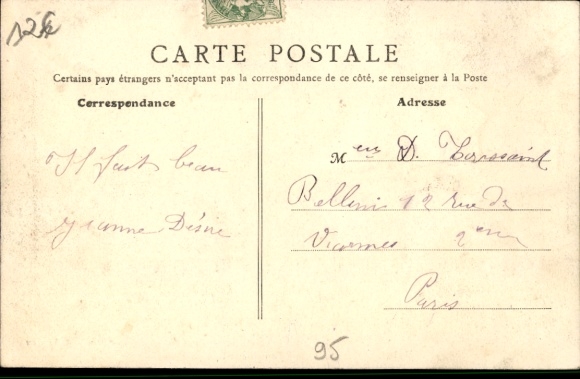 CARTE POSTALE
Certains pays étrangers n'acceptant pas la correspondance de ce côté, se renseigner à la Poste
Correspondance
Il fait beau
Jeanne Désire
Adresse
M D. Toussaint
12 rue de
Viarmes 2
Paris
95